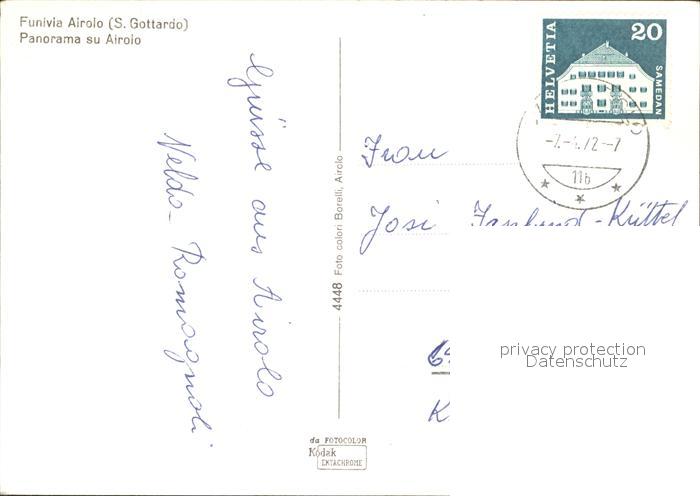 Funivia Airolo (S. Gottardo)
Panorama su Airolo
HELVETIA
20
SAMEDAN
-7.-4.72-7
116
Grüsse aus Airolo
Neldo Romagnoli
Frau
Josi -Küttel
4448 Foto colori Borelli, Airolo
64
K
privacy protection
Datenschutz
da FOTOCOLOR
Kodak
EKTACHROME